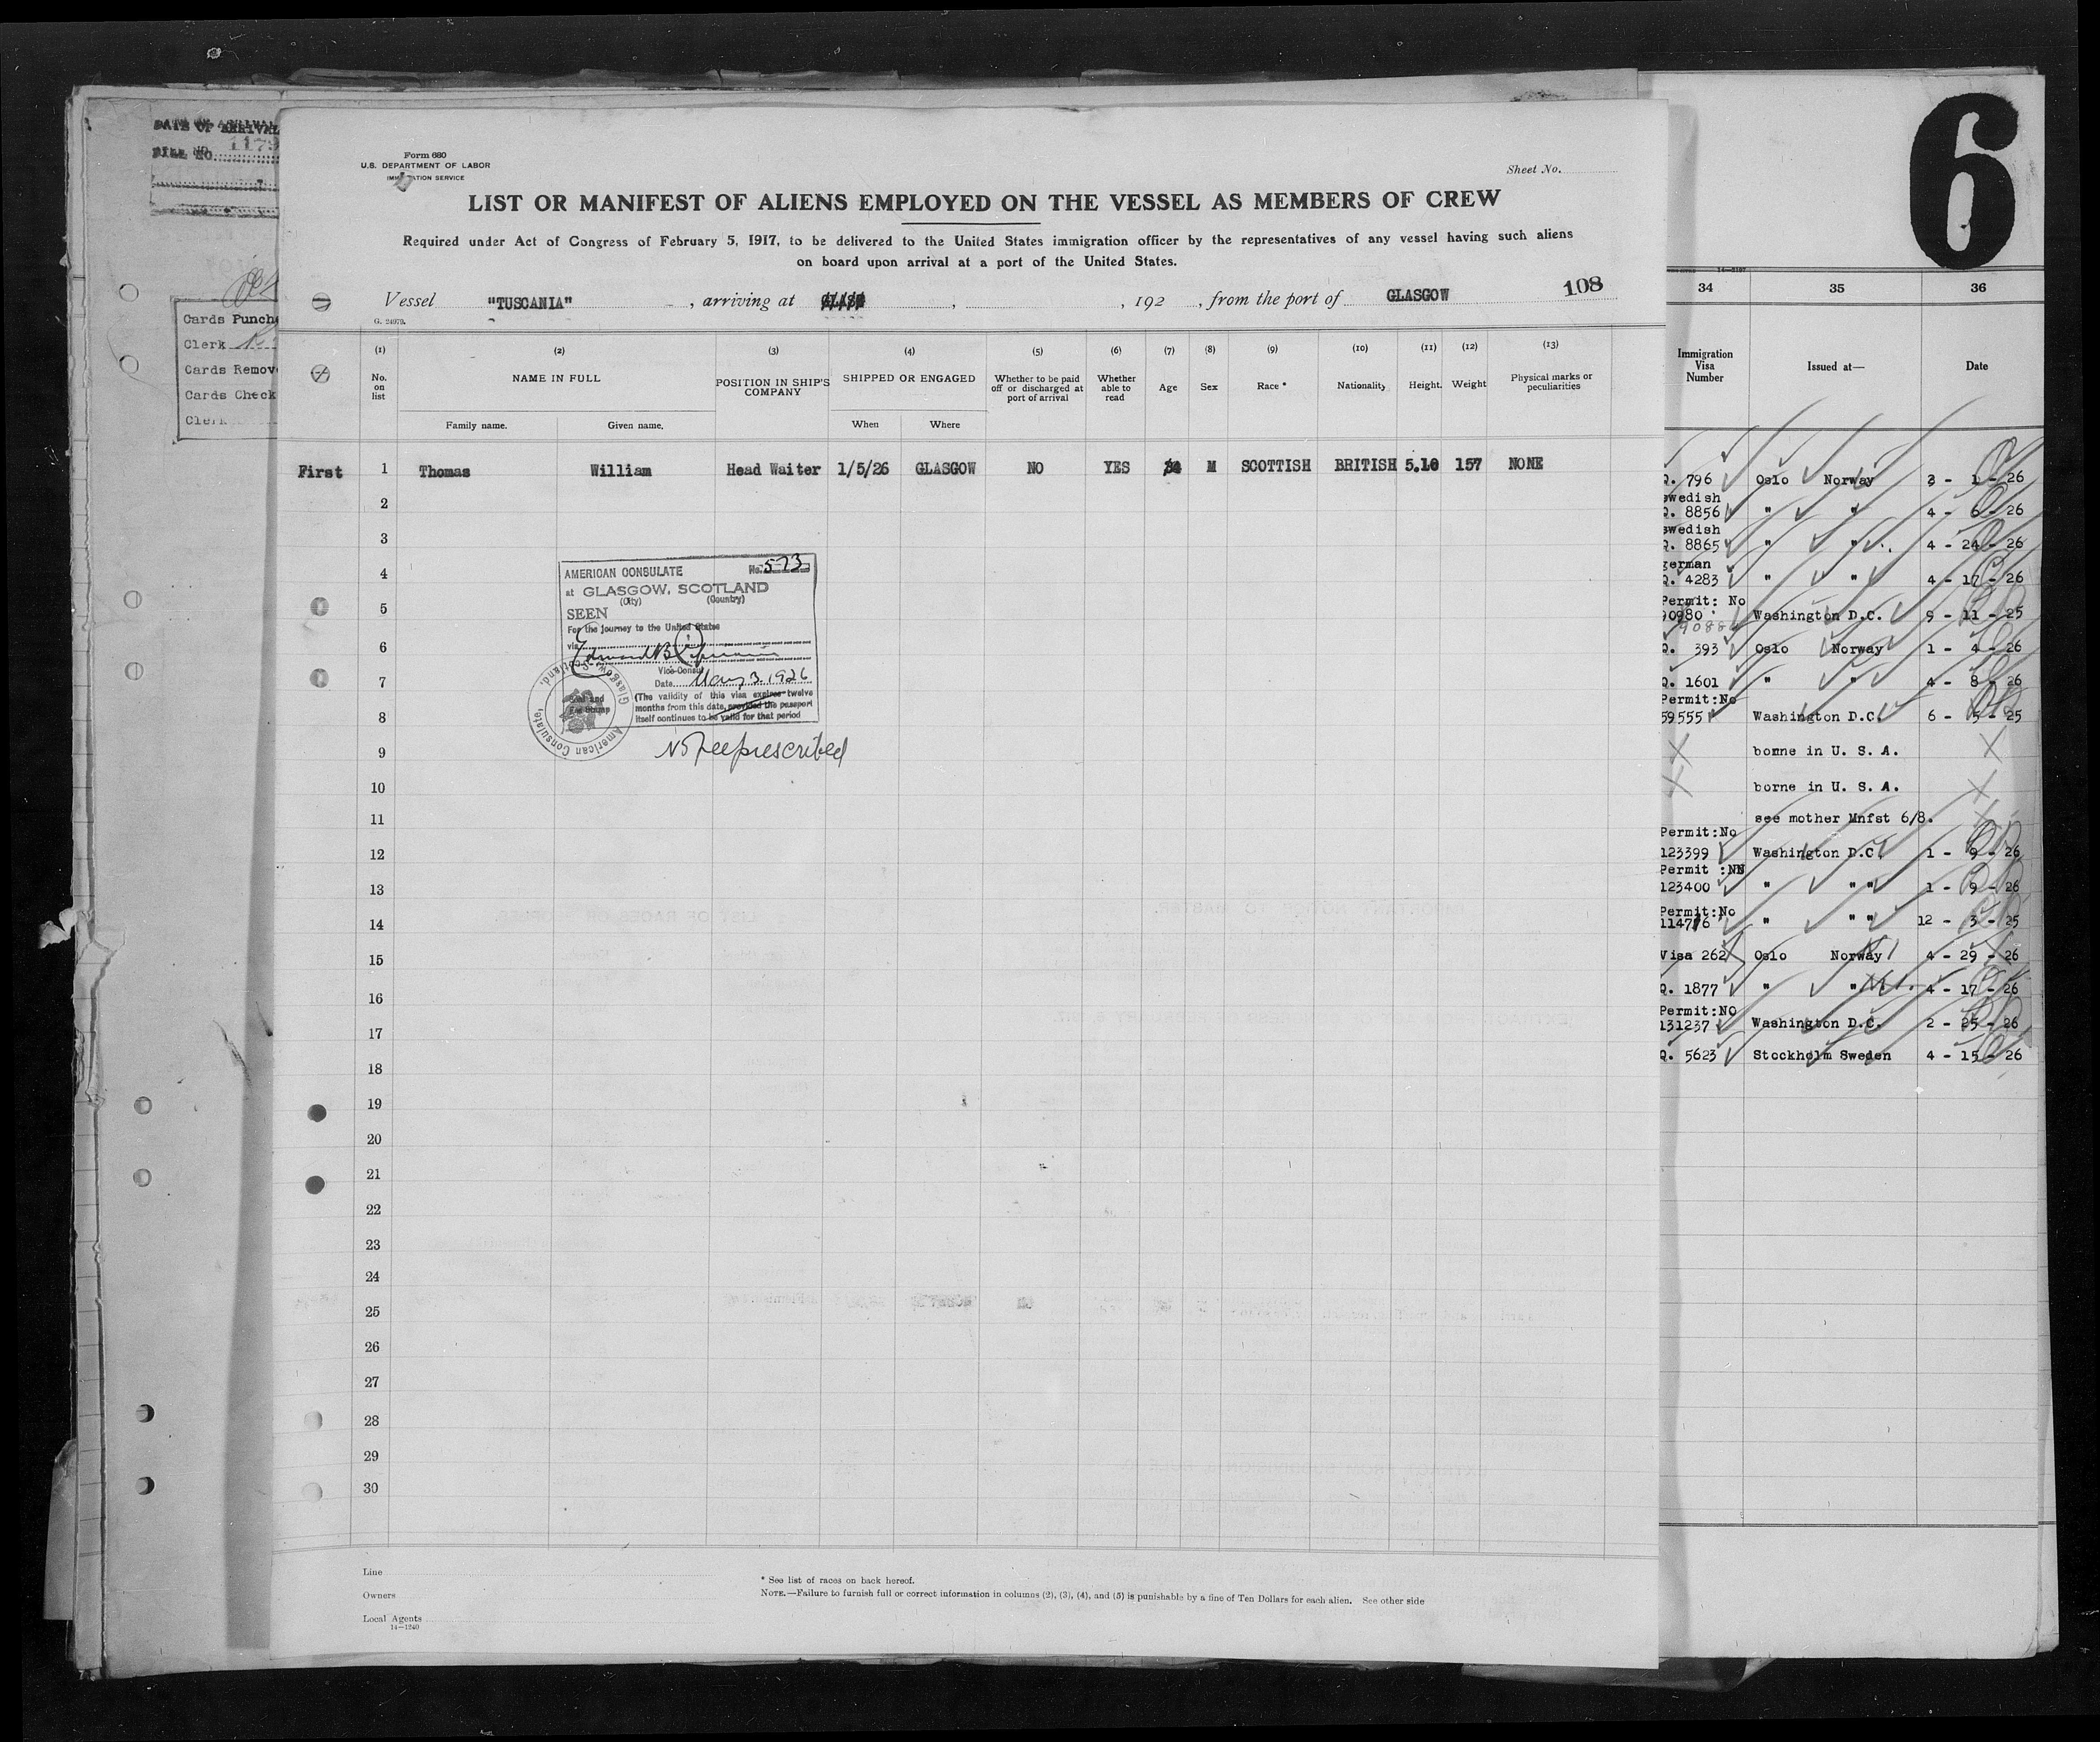 DATE OF ARRIVAL
FILE NO. 1179
Cards Punche
Clerk
Cards Remove
Cards Check
Clerk
Form 680
U.S. DEPARTMENT OF LABOR
IMMIGRATION SERVICE
Sheet No.
LIST OR MANIFEST OF ALIENS EMPLOYED ON THE VESSEL AS MEMBERS OF CREW
Required under Act of Congress of February 5, 1917, to be delivered to the United States immigration officer by the representatives of any vessel having such aliens
on board upon arrival at a port of the United States.
108
Vessel "TUSCANIA" , arriving at , , 192 , from the port of GLASGOW
G. 24979.
(1) (2) (3) (4) (5) (6) (7) (8) (9) (10) (11) (12) (13)
No. on list NAME IN FULL POSITION IN SHIP'S COMPANY SHIPPED OR ENGAGED Whether to be paid off or discharged at port of arrival Whether able to read Age Sex Race * Nationality Height. Weight Physical marks or peculiarities
Family name. Given name. When Where
First 1 Thomas William Head Waiter 1/5/26 GLASGOW NO YES 34 M SCOTTISH BRITISH 5.10 157 NONE
2
3
4
5
6
7
8
9
10
11
12
13
14
15
16
17
18
19
20
21
22
23
24
25
26
27
28
29
30
AMERICAN CONSULATE No. 573
at GLASGOW, SCOTLAND
(City) (Country)
SEEN
For the journey to the United States
via
Edward B.
Vice-Consul
Date May 3, 1926
(The validity of this visa expires twelve
months from this date, provided the passport
itself continues to be valid for that period
American Consulate, Glasgow, Scotland.
No fee prescribed
Line
Owners
Local Agents
14—1240
* See list of races on back hereof.
NOTE.—Failure to furnish full or correct information in columns (2), (3), (4), and (5) is punishable by a fine of Ten Dollars for each alien. See other side
6
34 35 36
Immigration Visa Number Issued at— Date
Q. 796 Oslo Norway 3 - 1 - 26
swedish
Q. 8856 " " 4 - 6 - 26
swedish
Q. 8865 " " 4 - 24 - 26
german
Q. 4283 " " 4 - 17 - 26
Permit: No
90980 Washington D.C. 9 - 11 - 25
Q. 393 Oslo Norway 1 - 4 - 26
Q. 1601 " " 4 - 8 - 26
Permit:No
59555 Washington D.C. 6 - 5 - 25
borne in U. S. A.
borne in U. S. A.
see mother Mnfst 6/8.
Permit:No
123399 Washington D.C. 1 - 9 - 26
Permit :NN
123400 " " " 1 - 9 - 26
Permit:No
114776 " " " 12 - 3 - 25
Visa 262 Oslo Norway 4 - 29 - 26
Q. 1877 " " 4 - 17 - 26
Permit:NO
131237 Washington D.C. 2 - 25 - 26
Q. 5623 Stockholm Sweden 4 - 15 - 26